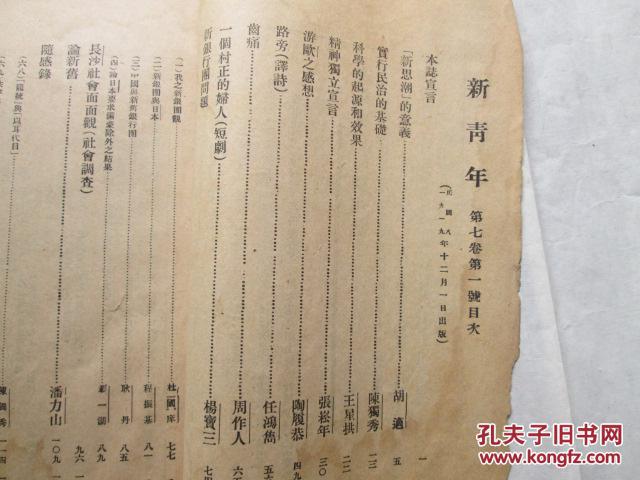 新青年 第七卷第一號目次
(民國八
一九一九年十二月一日出版)
本誌宣言 一
「新思潮」的意義 胡適 五
實行民治的基礎 陳獨秀 一三
科學的起源和效果 王星拱 二二
精神獨立宣言 張崧年 三〇
游歐之感想 陶履恭 四九
路旁(譯詩) 任鴻雋
齒痛 周作人 六
一個村正的婦人(短劇) 楊寶三 七
新銀行團問題
(一)我之新銀團觀 杜國庠 七七
(二)新銀團與日本 程振基 八一
(三)中國與新舊銀行團 耿丹 八五
(四)論日本要求滿蒙除外之結果 彭一湖 八九
長沙社會面面觀(社會調查) 九六
論新舊 潘力山 一〇九
隨感錄
(六八)「籠統」與「以耳代目」 陳獨秀 一一
孔夫子旧书网
KONGFZ.COM